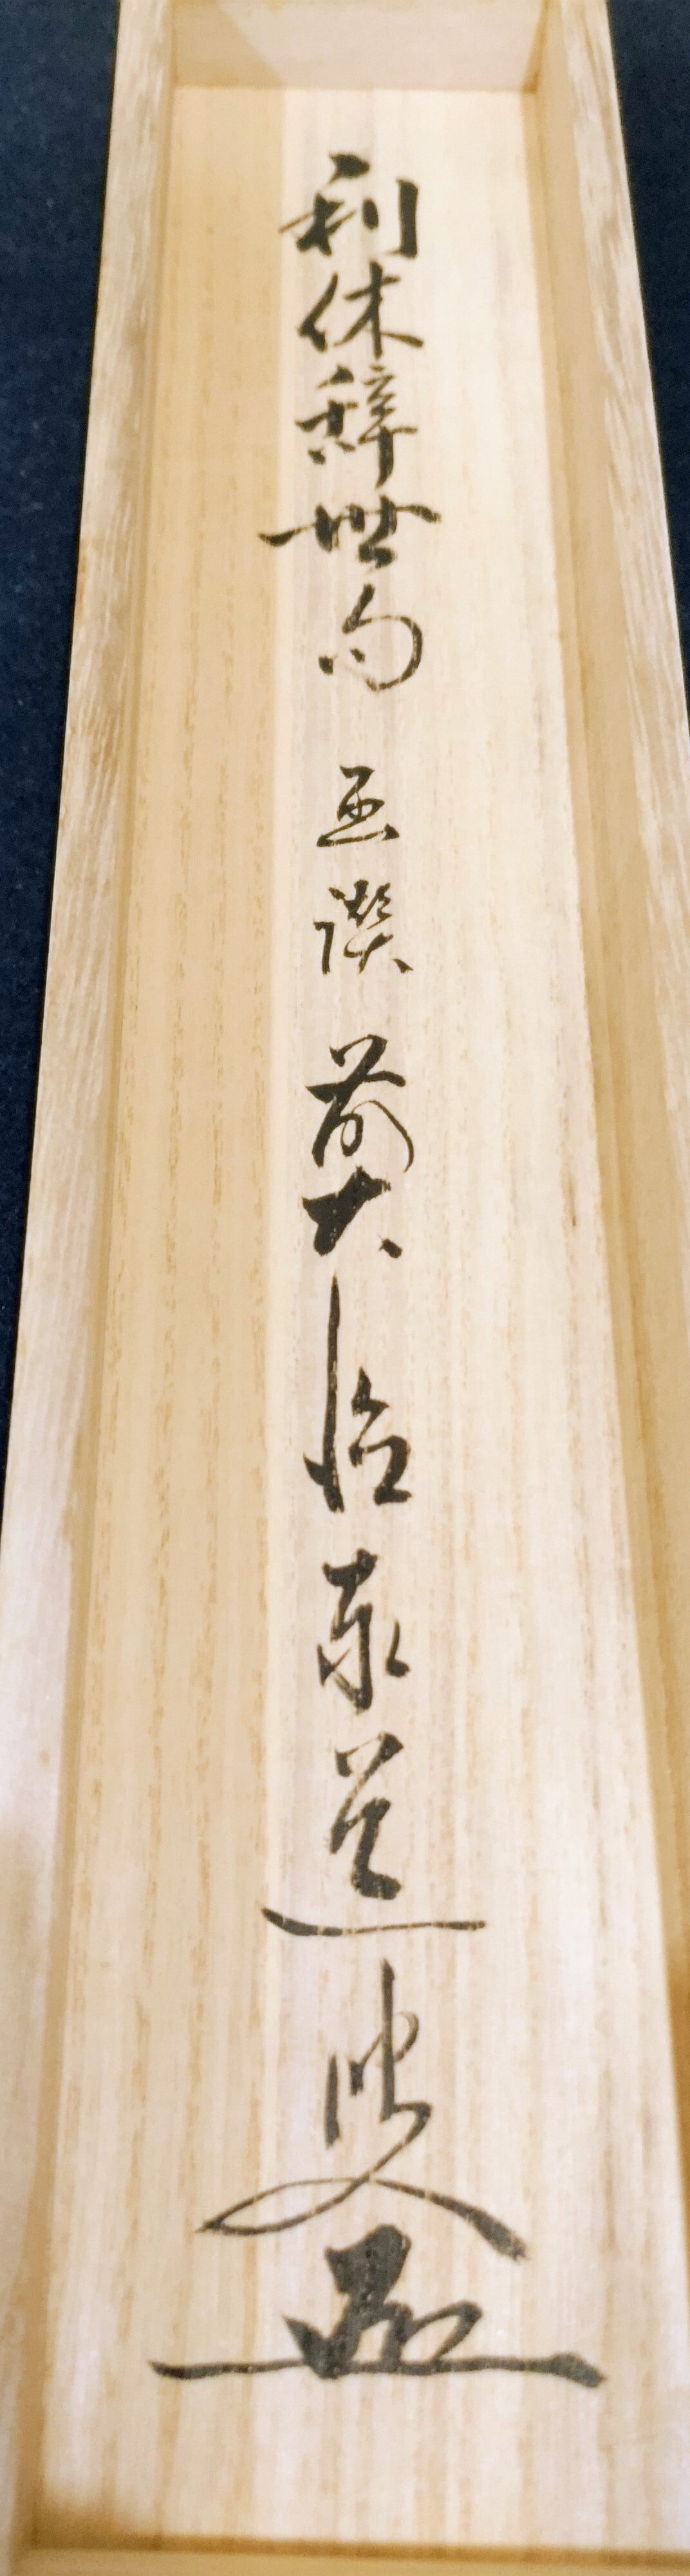 利休辞世句 画讃 前大徳泰道叟